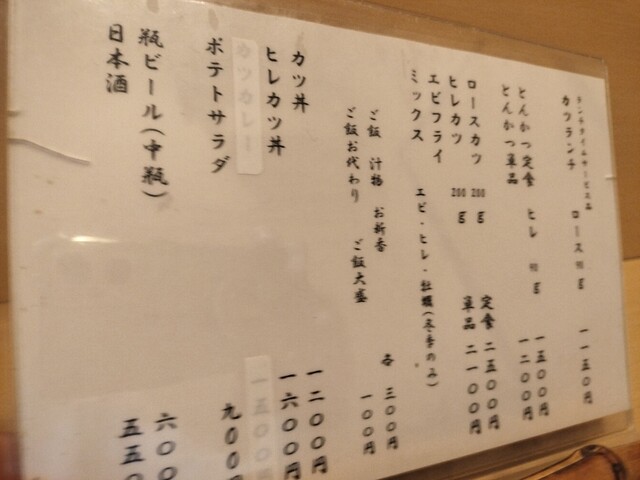 ランチタイムサービス品
カツランチ ロース90g 一一五〇円
とんかつ定食 ヒレ 90g 一五〇〇円
とんかつ単品 一二〇〇円
ロースカツ 200g 定食 二五〇〇円
ヒレカツ 200g 単品 二一〇〇円
エビフライ
ミックス エビ・ヒレ・牡蠣(冬季のみ)
ご飯 汁物 お新香 各 三〇〇円
ご飯お代わり ご飯大盛 一〇〇円
カツ丼 一二〇〇円
ヒレカツ丼 一六〇〇円
カツカレー 一五〇〇円
ポテトサラダ 九〇〇円
瓶ビール(中瓶) 六〇〇
日本酒 五五〇